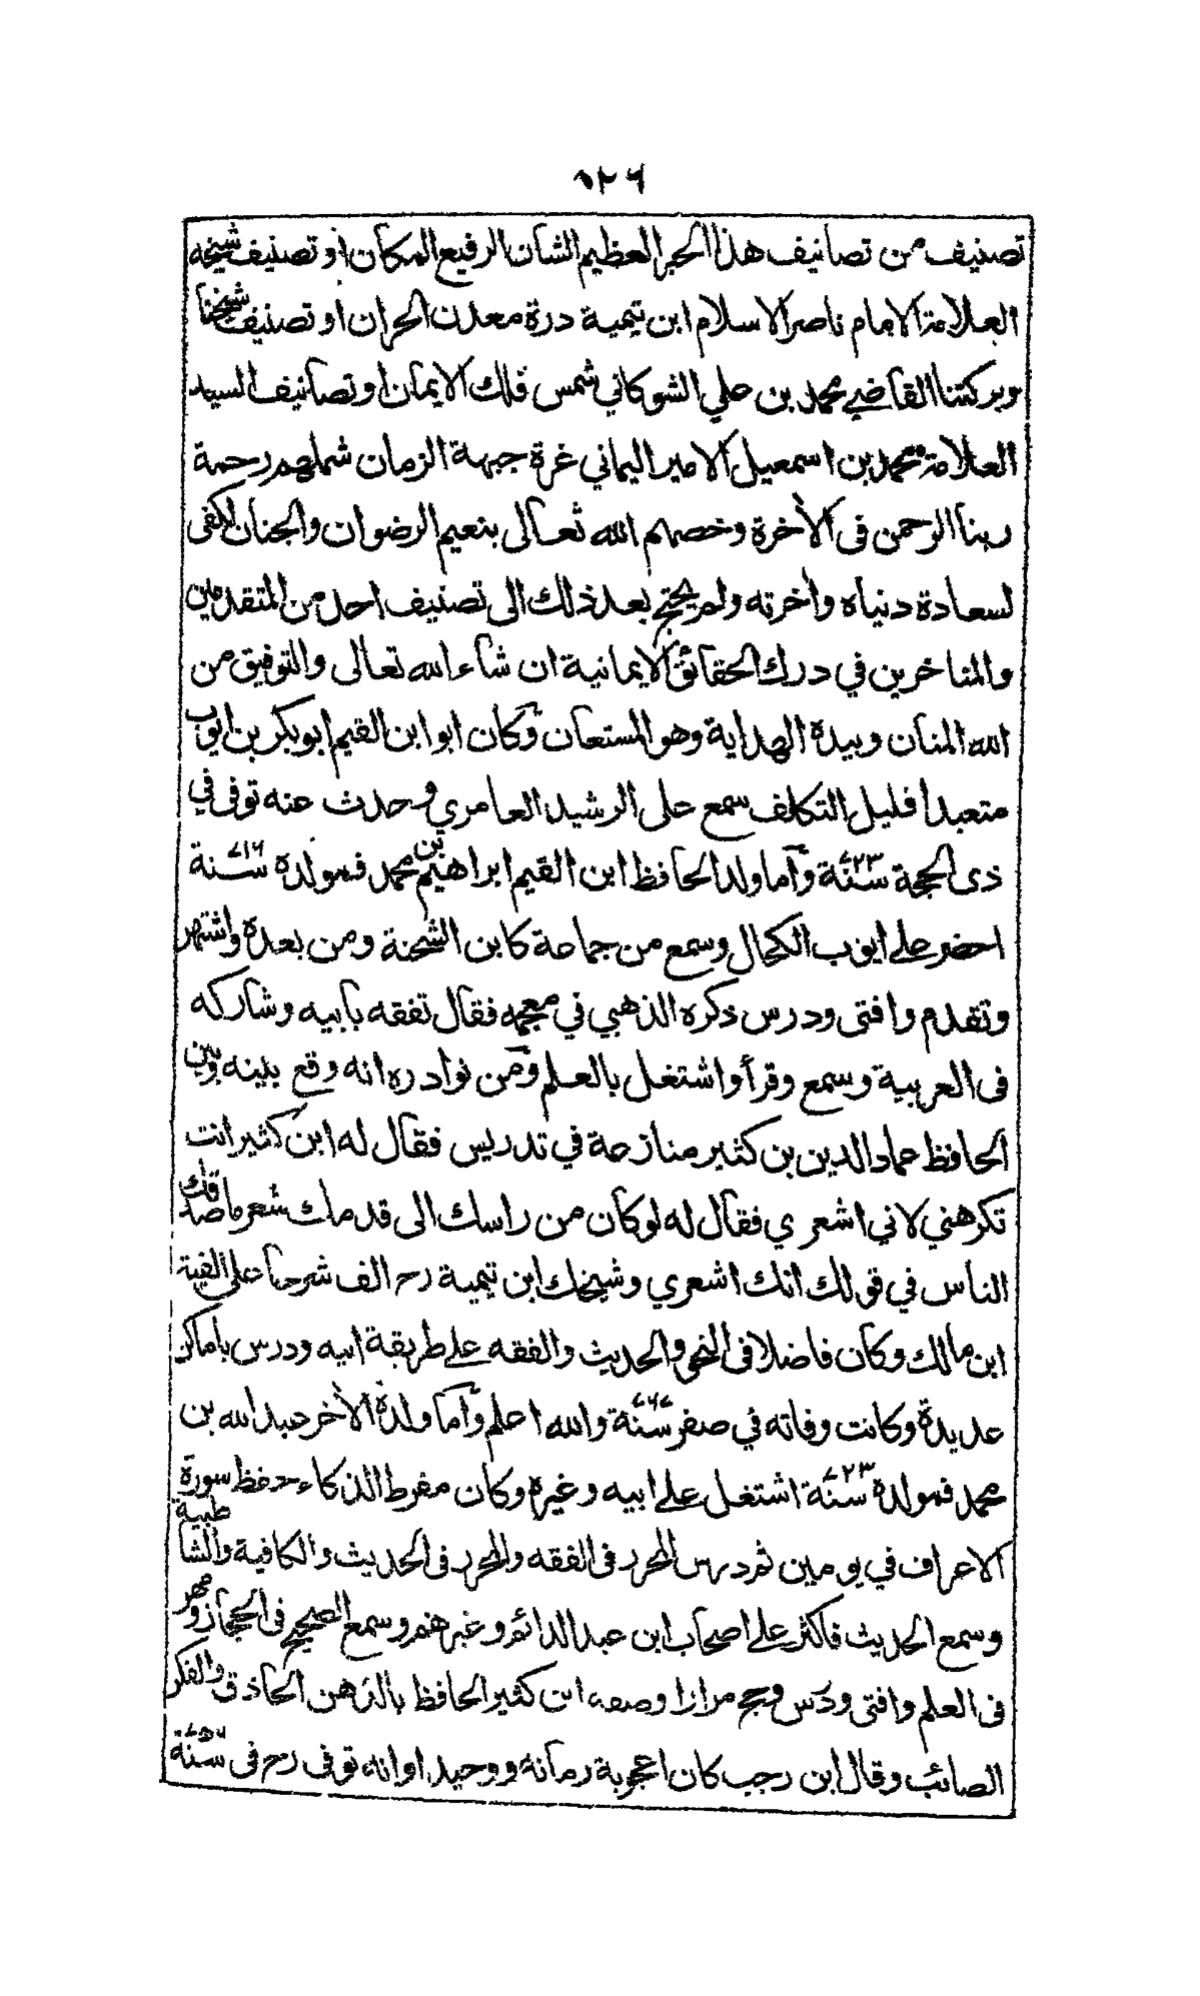 ١٢٦
تصنيف من تصانيف هذا الحبر العظيم الشان الرفيع المكان او تصنيف شيخه
العلامة الامام ناصر الاسلام ابن تيمية درة معدن الحران او تصنيف شيخنا
وبركتنا القاضي محمد بن علي الشوكاني شمس فلك الايمان او تصانيف السيد
العلامة محمد بن اسمعيل الامير اليماني غرة جبهة الزمان شملهم رحمة
ربنا الرحمن في الأخرة وخصهم الله تعالى بنعيم الرضوان والجنان لكفى
لسعادة دنياه وأخرته ولم يحتج بعد ذلك الى تصنيف احد من المتقدمين
والمتاخرين في درك الحقائق الايمانية ان شاء الله تعالى والتوفيق من
الله المنان وبيده الهداية وهو المستعان وكان ابو ابن القيم ابو بكر بن ايوب
متعبدا قليل التكلف سمع على الرشيد العامري وحدث عنه توفي في
ذى الحجة سنة ٧٢٣ وأما ولد الحافظ ابن القيم ابراهيم بن محمد فمولده سنة ٧١٦
احضر على ايوب الكحال وسمع من جماعة كابن الشحنة ومن بعده واشتهر
وتقدم وافتى ودرس ذكره الذهبي في معجمه فقال تفقه بأبيه وشاركه
في العربية وسمع وقرأ واشتغل بالعلم ومن نوادره انه وقع بينه وبين
الحافظ عماد الدين بن كثير منازعة في تدريس فقال له ابن كثير انت
تكرهني لاني اشعري فقال له لو كان من راسك الى قدمك شعر ما صدقك
الناس في قولك انك اشعري وشيخك ابن تيمية رح الف شرحا على الفية
ابن مالك وكان فاضلا في النحو والحديث والفقه على طريقة ابيه ودرس باماكن
عديدة وكانت وفاته في صفر سنة ٧٦٧ والله اعلم وأما ولدة الأخر عبد الله بن
محمد فمولدة سنة ٧٢٣ اشتغل على ابيه وغيره وكان مفرط الذكاء حفظ سورة
الاعراف في يومين ثم درس المحرر في الفقه والمحرر في الحديث والكافية والشاطبية
وسمع الحديث فاكثر على اصحاب ابن عبد الدائم وغيرهم وسمع الصحيح في الحجاز ومهر
في العلم وافتى ودرس وحج مرارا وصفه ابن كثير الحافظ بالذهن الحاذق والفكر
الصائب وقال ابن رجب كان اعجوبة زمانه ووحيد اوانه توفي رح في سنة ٧٥٦